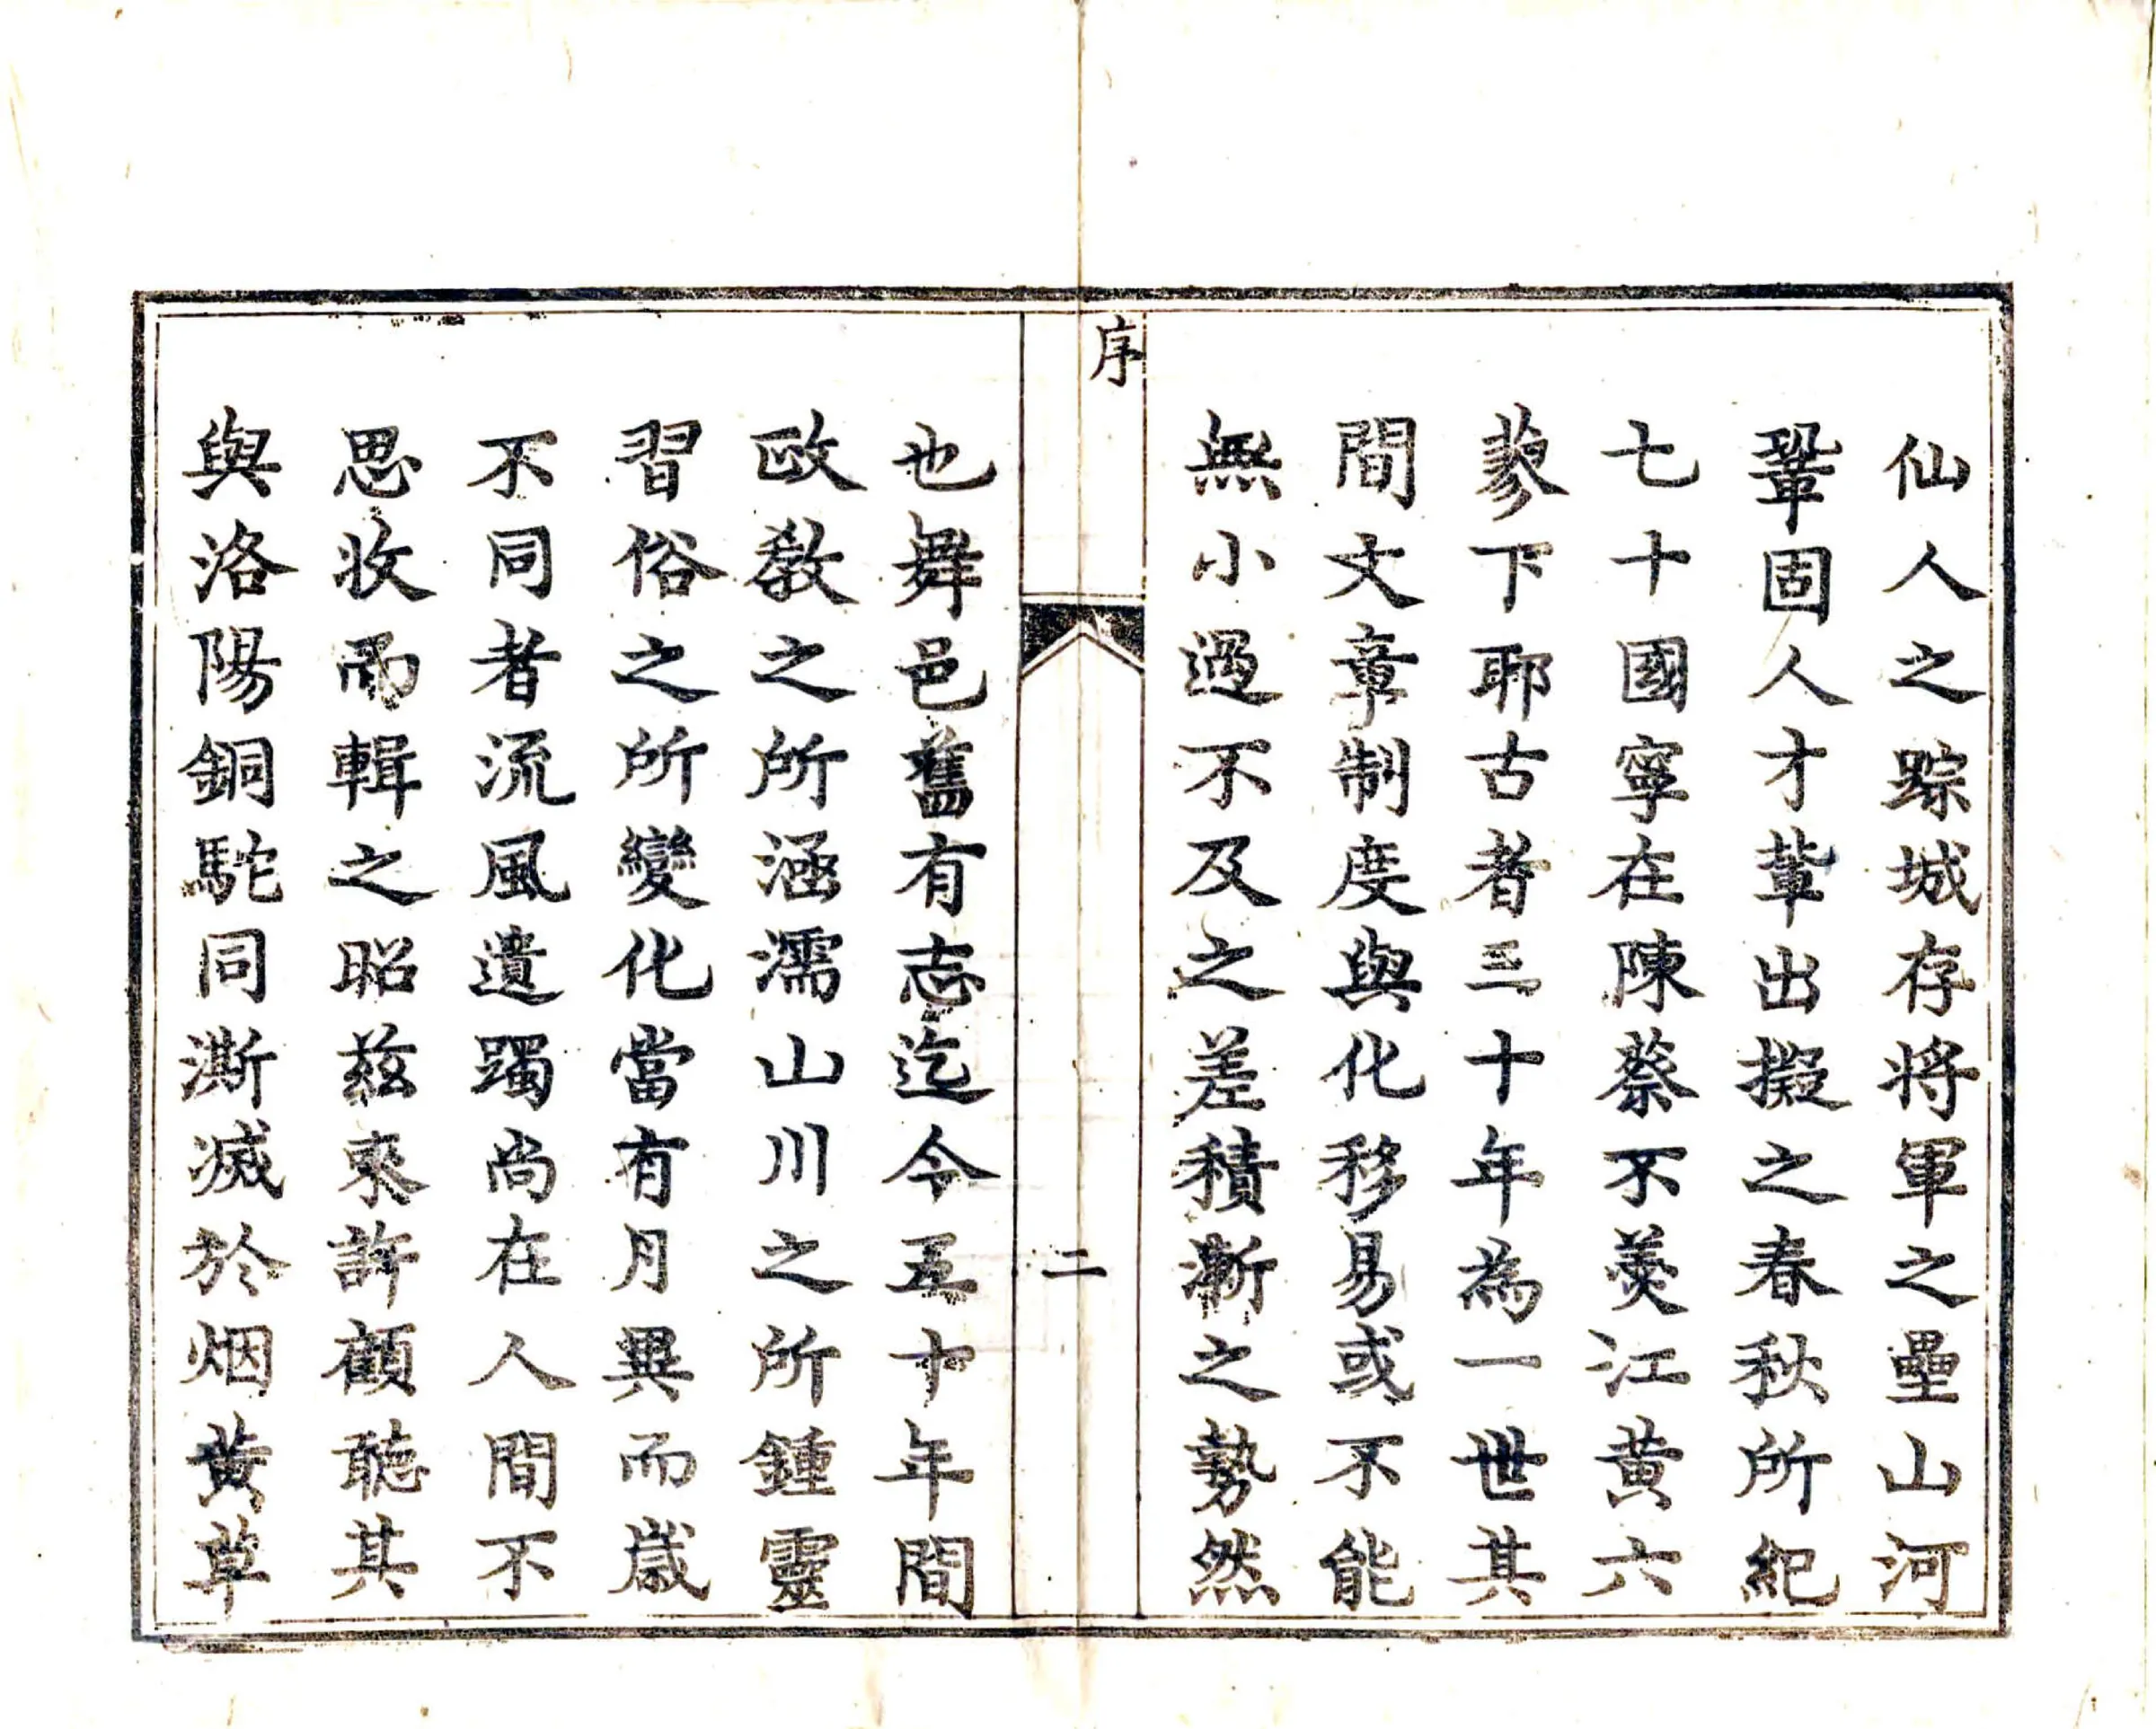 仙人之踪城存将軍之壘山河
鞏固人才輩出擬之春秋所紀
七十國寧在陳蔡不羙江黄六
蓼下耶古者三十年為一世其
間文章制度與化移易或不能
無小過不及之差積漸之勢然
序
二
也舞邑舊有志迄今五十年間
政教之所涵濡山川之所鍾靈
習俗之所變化當有月異而歲
不同者流風遺躅尚在人間不
思收而輯之昭茲來許顧聽其
與洛陽銅駝同澌滅於烟黄草